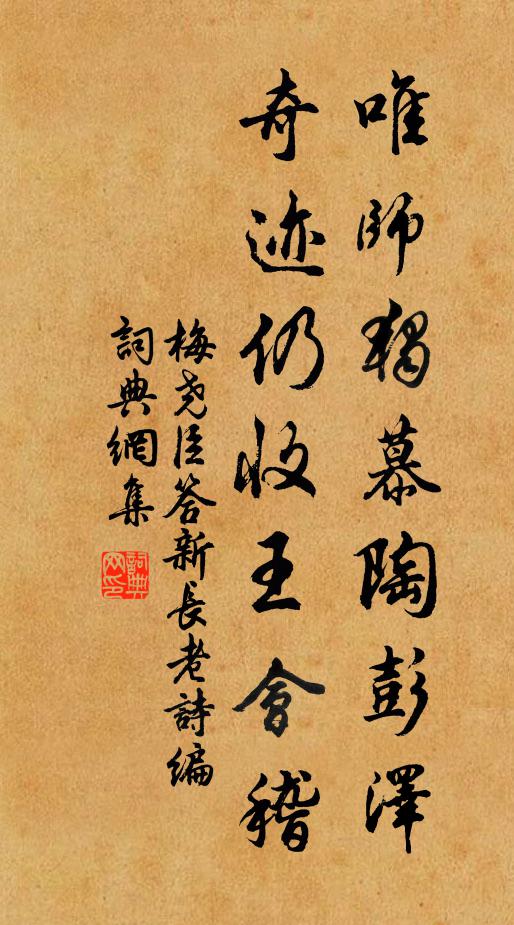 唯師獨慕陶彭澤
奇迹仍收王會稽
梅尧臣答新長老詩编
詞典網集
詞典网印